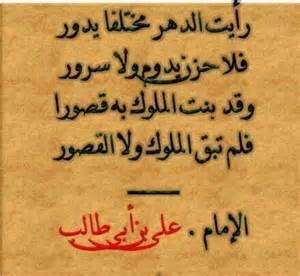 رأيت الدهر مختلفا يدور
فلا حزن يدوم ولا سرور
وقد بنت الملوك به قصورا
فلم تبق الملوك ولا القصور
الإمام . علي بن أبي طالب